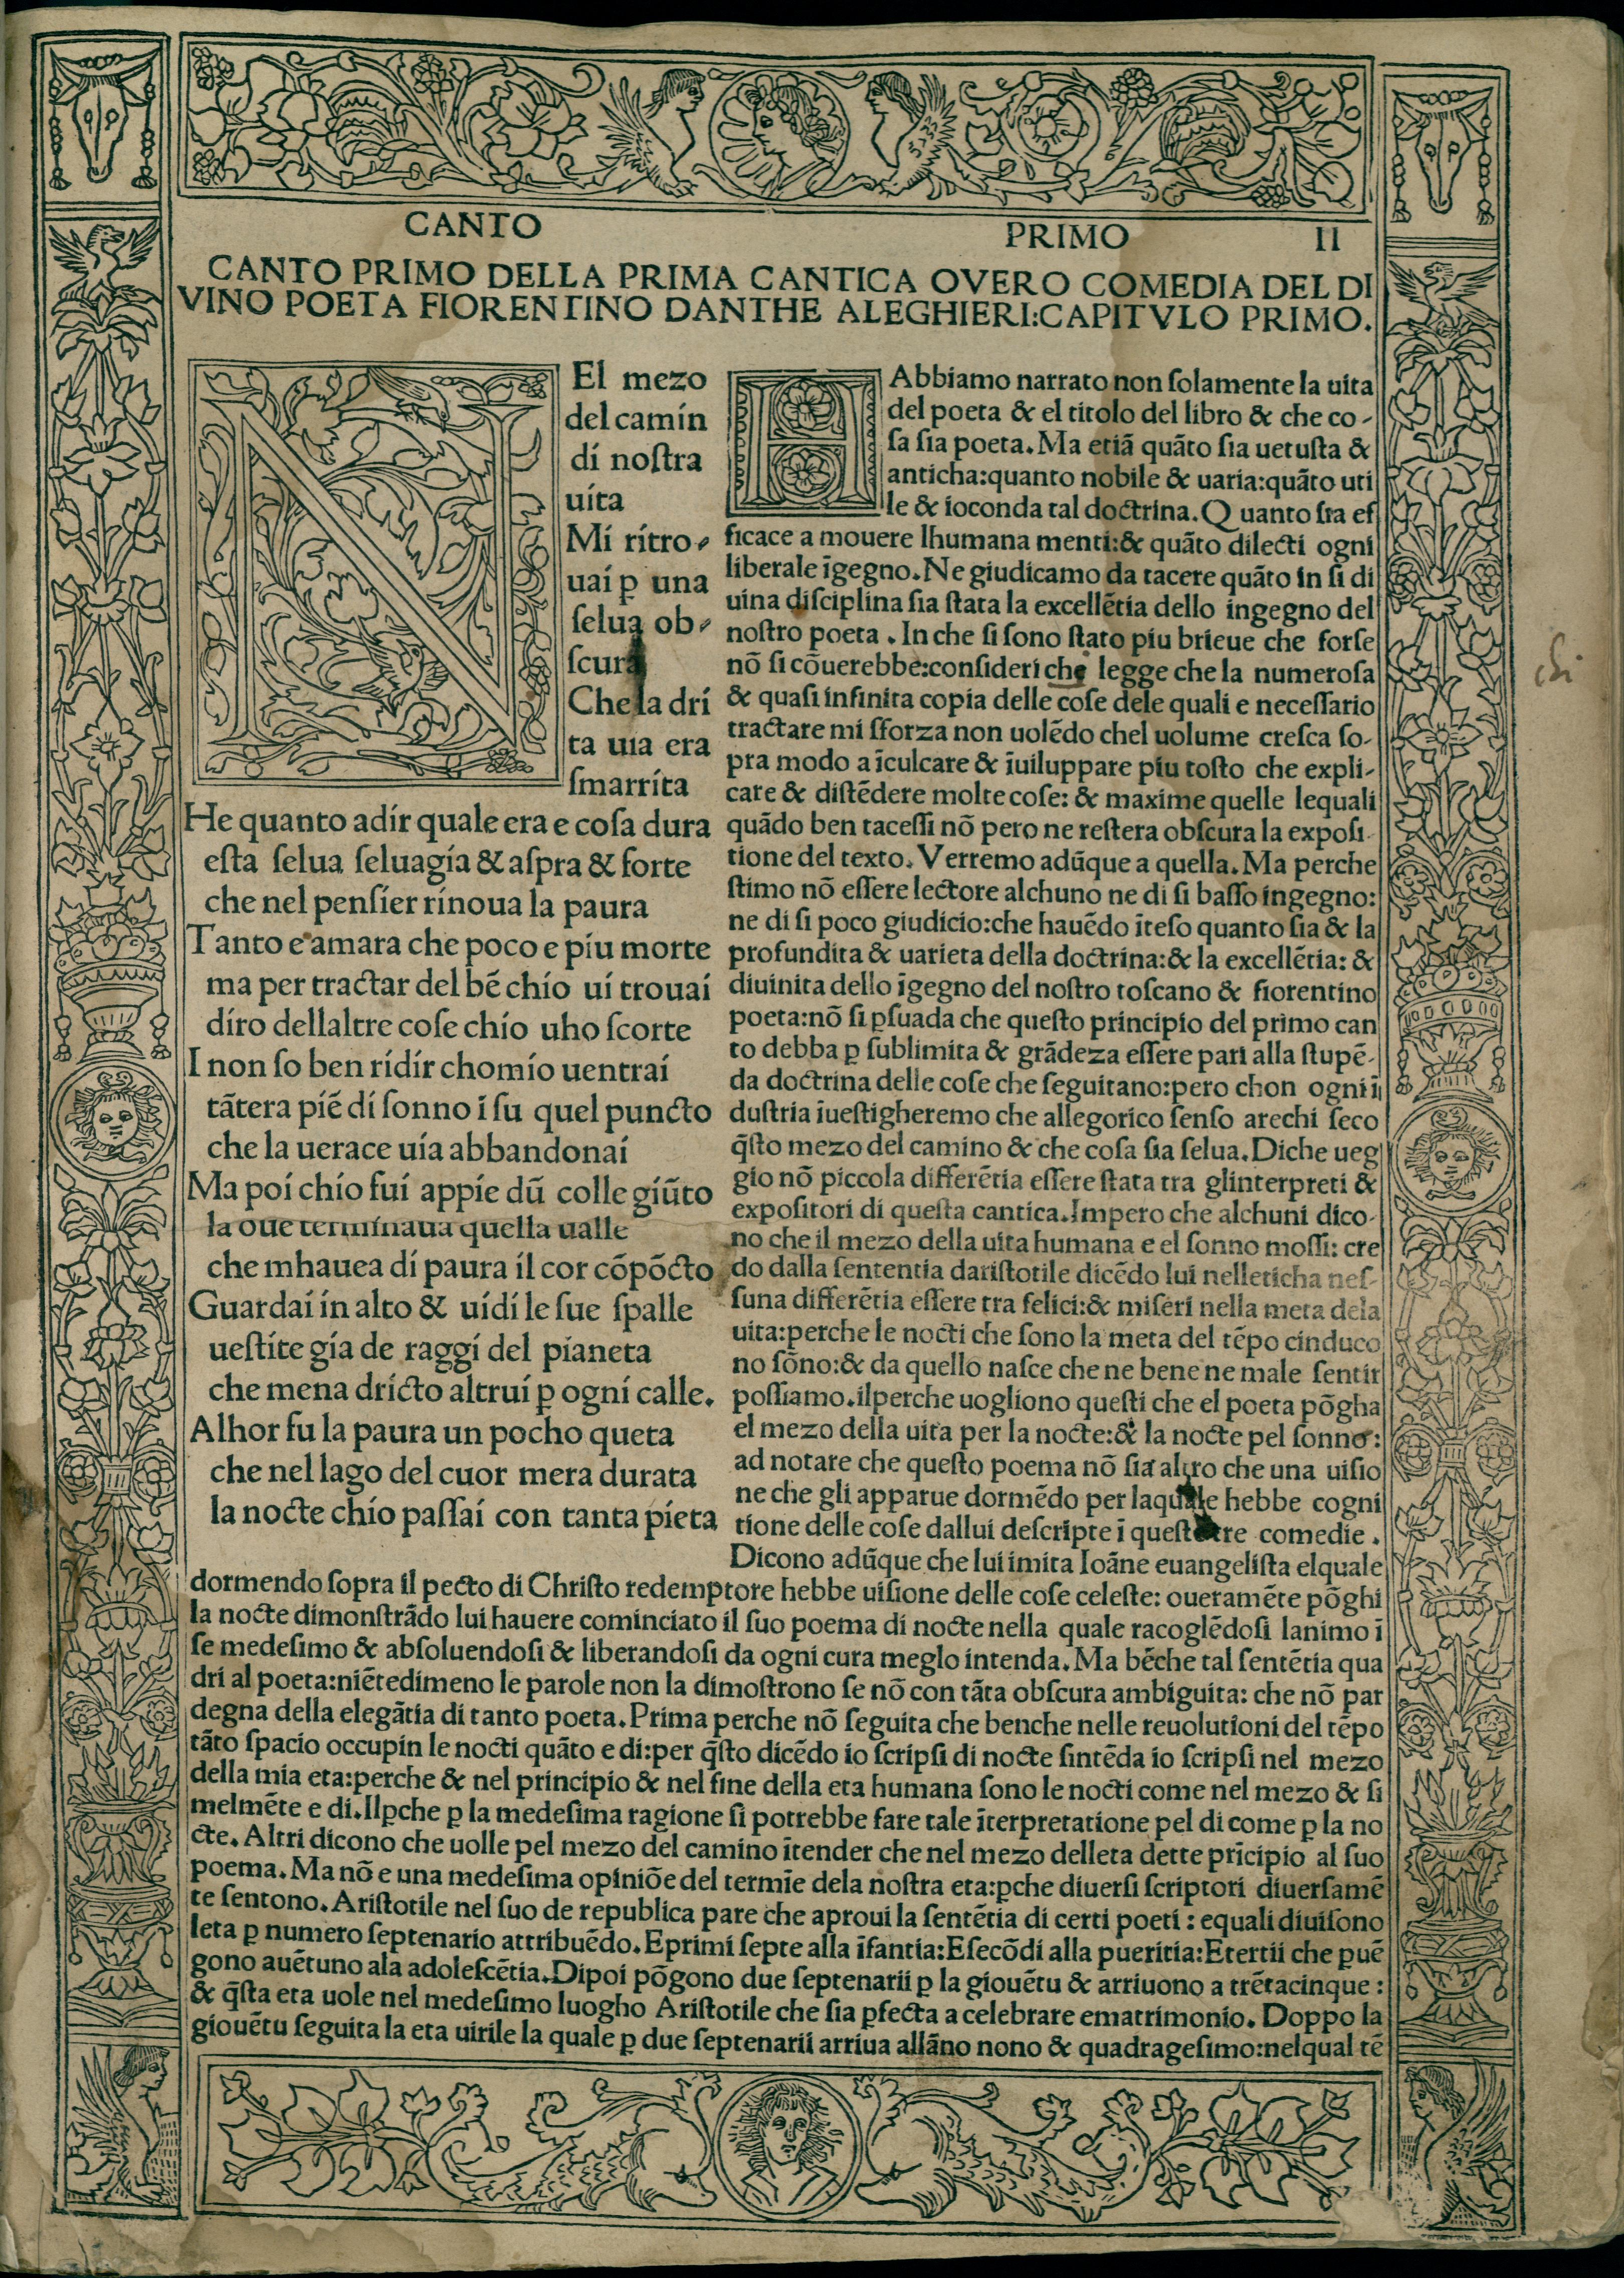 CANTO PRIMO II
CANTO PRIMO DELLA PRIMA CANTICA OVERO COMEDIA DEL DI
VINO POETA FIORENTINO DANTHE ALEGHIERI:CAPITVLO PRIMO.
NEl mezo
del camin
di noſtra
uita
Mi ritro-
uai ꝑ una
ſelua ob-
ſcura
Che la dri
ta uia era
ſmarrita
He quanto adir quale era e coſa dura
eſta ſelua ſeluagia & aſpra & forte
che nel penſier rinoua la paura
Tanto e amara che poco e piu morte
ma per tractar del bẽ chio ui trouai
diro dellaltre coſe chio uho ſcorte
I non ſo ben ridir chomio uentrai
tãtera piẽ di ſonno ĩ ſu quel puncto
che la uerace uia abbandonai
Ma poi chio fui appie dũ colle giũto
la oue terminaua quella ualle
che mhauea di paura il cor cõpõcto
Guardai in alto & uidi le ſue ſpalle
ueſtite gia de raggi del pianeta
che mena dricto altrui ꝑ ogni calle.
Alhor fu la paura un pocho queta
che nel lago del cuor mera durata
la nocte chio paſſai con tanta pieta
HAbbiamo narrato non ſolamente la uita
del poeta & el titolo del libro & che co-
ſa ſia poeta. Ma etiã quãto ſia uetuſta &
anticha:quanto nobile & uaria:quãto uti
le & ioconda tal doctrina. Quanto ſia ef
ficace a mouere lhumana menti:& quãto dilecti ogni
liberale ĩgegno. Ne giudicamo da tacere quãto in ſi di
uina diſciplina ſia ſtata la excellẽtia dello ingegno del
noſtro poeta. In che ſi ſono ſtato piu brieue che forſe
nõ ſi cõuerebbe:conſideri che legge che la numeroſa
& quaſi infinita copia delle coſe dele quali e neceſſario
tractare mi ſforza non uolẽdo chel uolume creſca ſo-
pra modo a ĩculcare & ĩuiluppare piu toſto che expli-
care & diſtẽdere molte coſe: & maxime quelle lequali
quãdo ben taceſſi nõ pero ne reſtera obſcura la expoſi-
tione del texto. Verremo adũque a quella. Ma perche
ſtimo nõ eſſere lectore alchuno ne di ſi baſſo ingegno:
ne di ſi poco giudicio:che hauẽdo ĩteſo quanto ſia & la
profundita & uarieta della doctrina:& la excellẽtia: &
diuinita dello ĩgegno del noſtro toſcano & fiorentino
poeta:nõ ſi ꝑſuada che queſto principio del primo can
to debba ꝑ ſublimita & grãdeza eſſere pari alla ſtupẽ-
da doctrina delle coſe che ſeguitano:pero chon ogni ĩ
duſtria ĩueſtigheremo che allegorico ſenſo arechi ſeco
q̃ſto mezo del camino & che coſa ſia ſelua. Diche ueg
gio nõ piccola differẽtia eſſere ſtata tra glinterpreti &
expoſitori di queſta cantica. Impero che alchuni dico-
no che il mezo della uita humana e el ſonno moſſi: cre
do dalla ſententia dariſtotile dicẽdo lui nelleticha neſ-
ſuna differẽtia eſſere tra felici:& miſeri nella meta dela
uita:perche le nocti che ſono la meta del tẽpo cinduco
no ſõno:& da quello naſce che ne bene ne male ſentir
poſſiamo. ilperche uogliono queſti che el poeta põgha
el mezo della uita per la nocte:& la nocte pel ſonno:
ad notare che queſto poema nõ ſia altro che una uiſio
ne che gli apparue dormẽdo per laquale hebbe cogni
tione delle coſe dallui deſcripte ĩ queſte tre comedie.
Dicono adũque che lui imita Ioãne euangeliſta elquale
dormendo ſopra il pecto di Chriſto redemptore hebbe uiſione delle coſe celeſte: oueramẽte põghi
la nocte dimonſtrãdo lui hauere cominciato il ſuo poema di nocte nella quale racoglẽdoſi lanimo ĩ
ſe medeſimo & abſoluendoſi & liberandoſi da ogni cura meglo intenda. Ma bẽche tal ſentẽtia qua
dri al poeta:niẽtedimeno le parole non la dimoſtrono ſe nõ con tãta obſcura ambiguita: che nõ par
degna della elegãtia di tanto poeta. Prima perche nõ ſeguita che benche nelle reuolutioni del tẽpo
tãto ſpacio occupin le nocti quãto e di:per q̃ſto dicẽdo io ſcripſi di nocte ſintẽda io ſcripſi nel mezo
della mia eta:perche & nel principio & nel fine della eta humana ſono le nocti come nel mezo & ſi
melmẽte e di. Ilꝑche ꝑ la medeſima ragione ſi potrebbe fare tale ĩterpretatione pel di come ꝑ la no
cte. Altri dicono che uolle pel mezo del camino ĩtender che nel mezo delleta dette prĩcipio al ſuo
poema. Ma nõ e una medeſima opiniõe del termĩe dela noſtra eta:ꝑche diuerſi ſcriptori diuerſamẽ
te ſentono. Ariſtotile nel ſuo de republica pare che aproui la ſentẽtia di certi poeti: equali diuiſono
leta ꝑ numero ſeptenario attribuẽdo. E primi ſepte alla ĩfantia:E ſecõdi alla pueritia:E tertii che ꝑuẽ
gono auẽtuno ala adoleſcẽtia. Dipoi põgono due ſeptenarii ꝑ la giouẽtu & arriuono a trẽtacinque:
& q̃ſta eta uole nel medeſimo luogho Ariſtotile che ſia ꝑfecta a celebrare ematrimonio. Doppo la
giouẽtu ſeguita la eta uirile la quale ꝑ due ſeptenarii arriua allãno nono & quadrageſimo:nelqual tẽ
chi